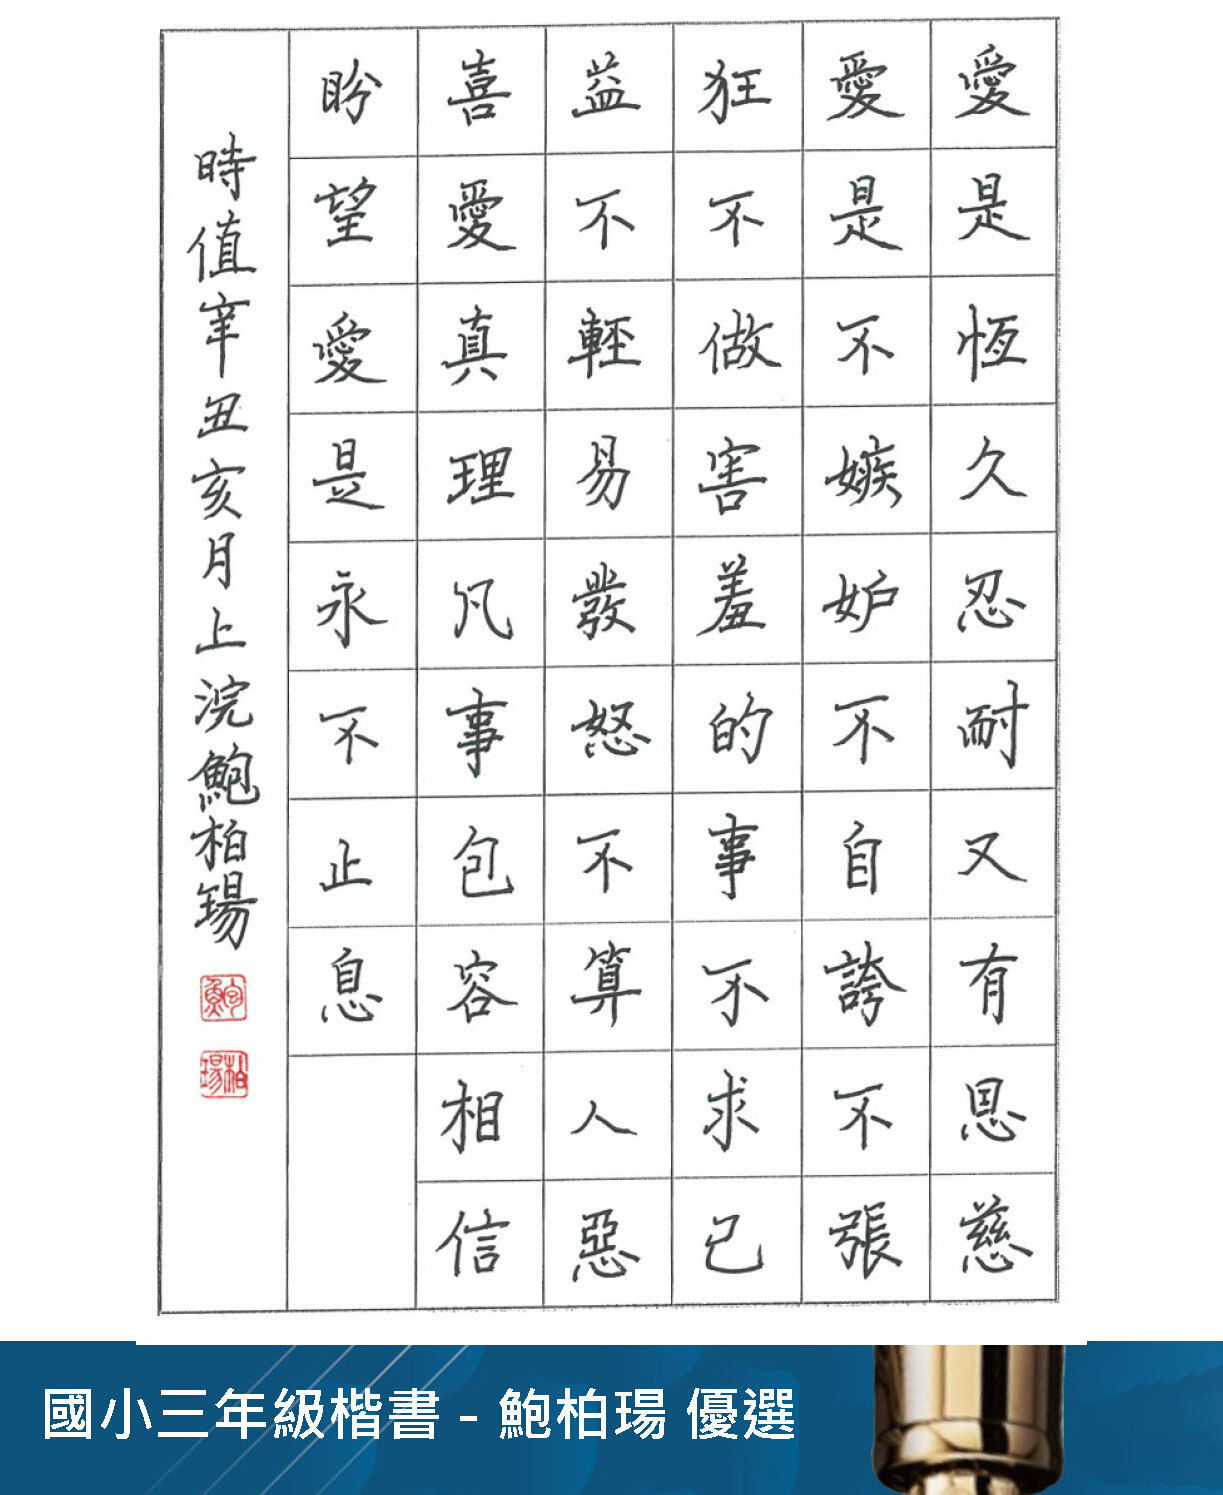 愛是恆久忍耐又有恩慈
愛是不嫉妒不自誇不張
狂不做害羞的事不求己
益不輕易發怒不算人惡
喜愛真理凡事包容相信
盼望愛是永不止息
時值辛丑亥月上浣鮑柏瑒
鮑
柏瑒
國小三年級楷書 - 鮑柏瑒 優選